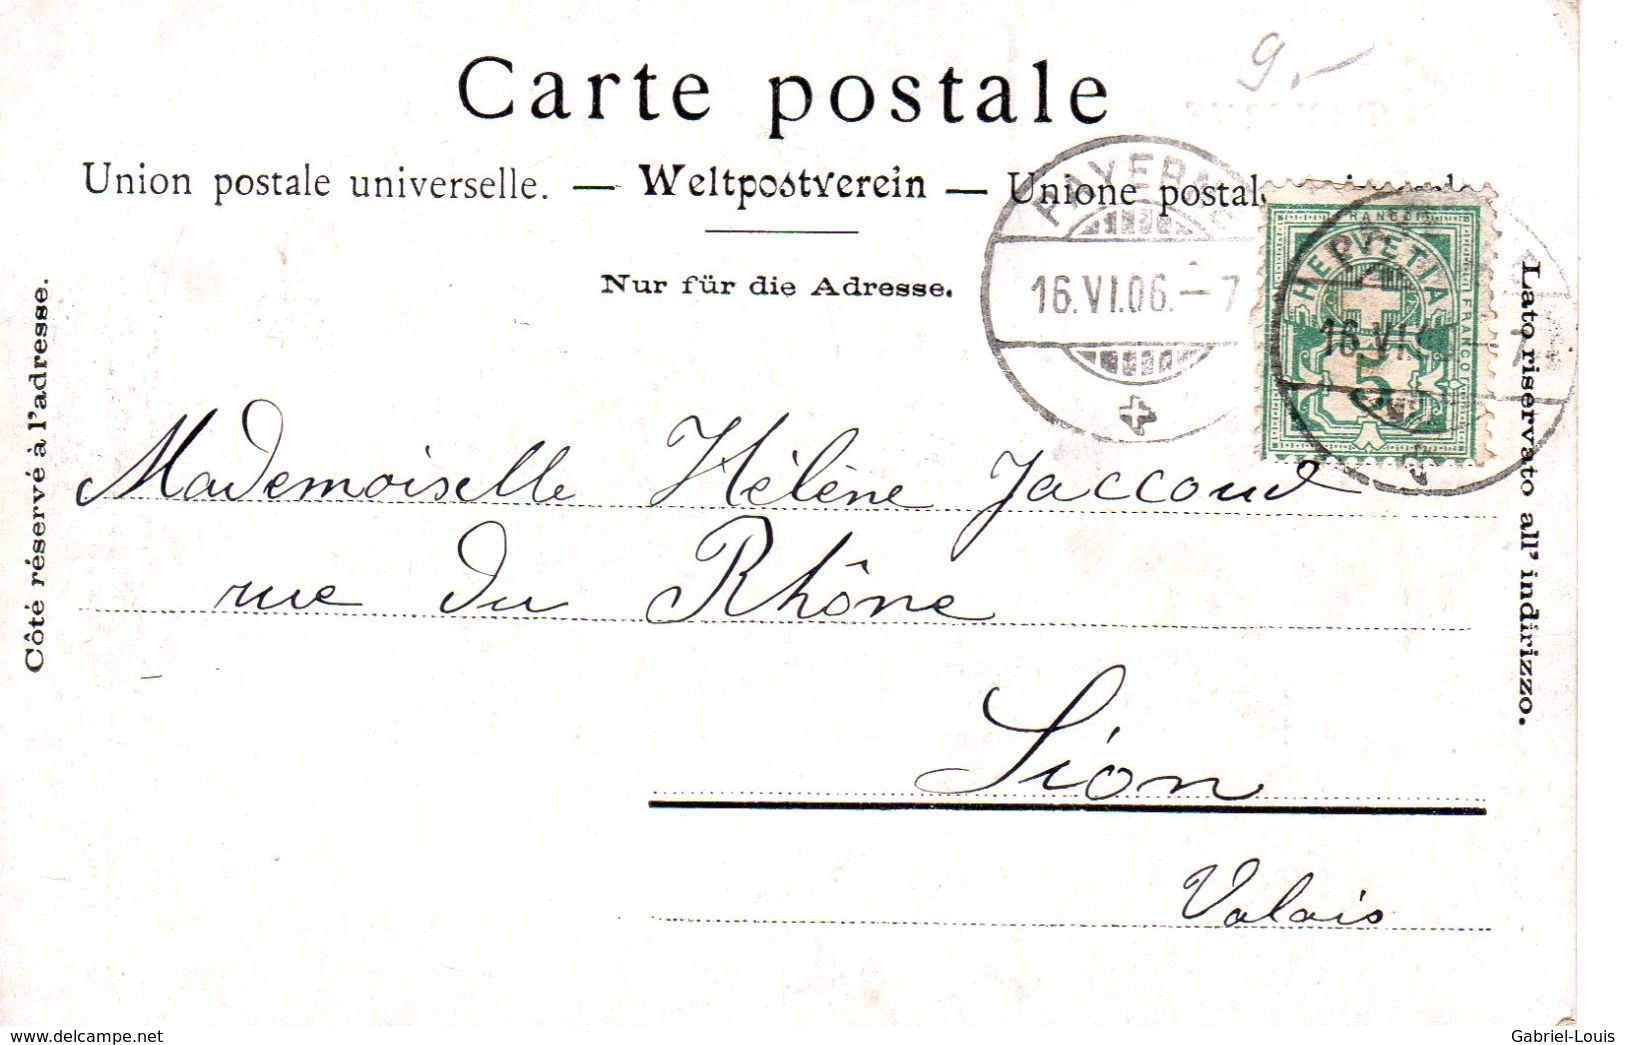 9.-
Carte postale
Union postale universelle. — Weltpostverein — Unione postale
Nur für die Adresse.
Côté réservé à l'adresse.
Lato riservato all' indirizzo.
PAYERNE
16.VI.06.—7
FRANCO
HELVETIA
FRANCO
5
16.VI
7
Mademoiselle Hélène Jaccoud
rue du Rhône
Sion
Valais
www.delcampe.net
Gabriel-Louis